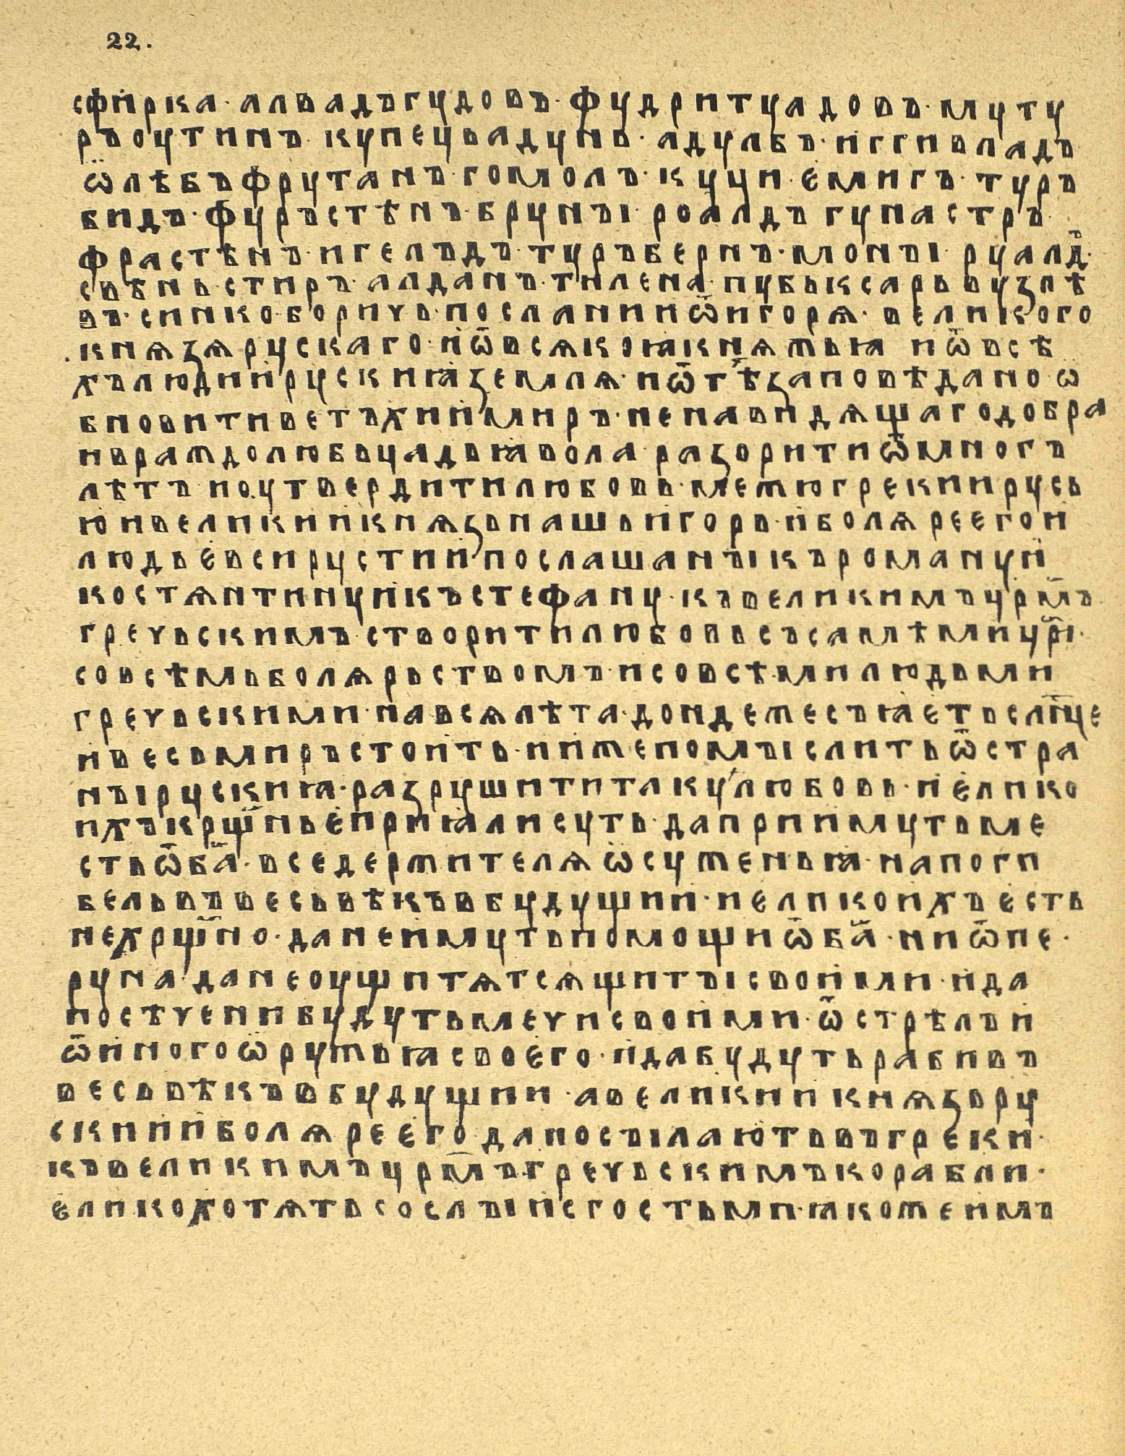 22.
сфирка · алвадъгудовъ · фудритуадовъ · муту
ръоутинъ купецьадунь · адулбъ · иггивладъ
ѿлѣбъфрутанъ гомолъ · куци ємигъ · туръ
бидъ · фуръстѣнъ · брунъі роалдъ гунастръ
фрастѣнъ · игелъдъ · туръбернъ · монъі руалⷣ ·
свѣнь стиръ · алданъ · тилена · пубьксарь вузлѣ
въ · синко · боричь · послании ѿигорѧ · великого
кнѧзѧ рускаго · иѿ всѧкоꙗ кнѧжьꙗ иѿ всѣ
хълюдии рускиꙗ землѧ · иѿтѣх заповѣдано ѡ
бновитиветъхии миръ · ненавидѧщаго добра
ивраждолюбьцадьꙗвола разоритиѿмногъ
лѣтъ иоутвердитилюбовь · межюгрекиирусь
ю ивеликии кнѧзь нашь игорь · иболѧреегои
людьєвси рустии послашанъі къроману и
костѧнтину икъстефану · къвеликимъ црⷭ҇мъ
гречьскимъ створитилюбовь съсамѣми црⷭ҇і ·
совсѣмь болѧрьствомъ исовсѣмилюдьми
гречьскими · навсѧлѣта · дондежесъꙗєть слн҃це
ивесьмиръстоить · ииженомъіслитьѿстра
нъі рускиꙗ · разрушититаку любовь · иєлико
ихъкрщ҃ньєприꙗлисуть · даприимутьме
стьѿб҃а · вседержителѧ ѡсуженьꙗ · напоги
бельвъвесьвѣкъвбудущии · иеликоихъесть
нехрщ҃но · данеимутьпомощиѿб҃а · ниѿпе ·
руна · данеоущитѧтсѧщитъі своими · ида
посѣчени будутьмечисвоими · ѿстрѣлъи
ѿиногоѡружьꙗ своєго · идабудутьрабивъ
весьвѣкъвбудущии · авеликии кнѧзьру
скиии болѧрееєго дапосъілаютьвъгреки ·
къвеликимъ црⷭ҇мъ гречьскимъкорабли ·
єликохотѧть сослъі исгостьми · ꙗкожеимъ